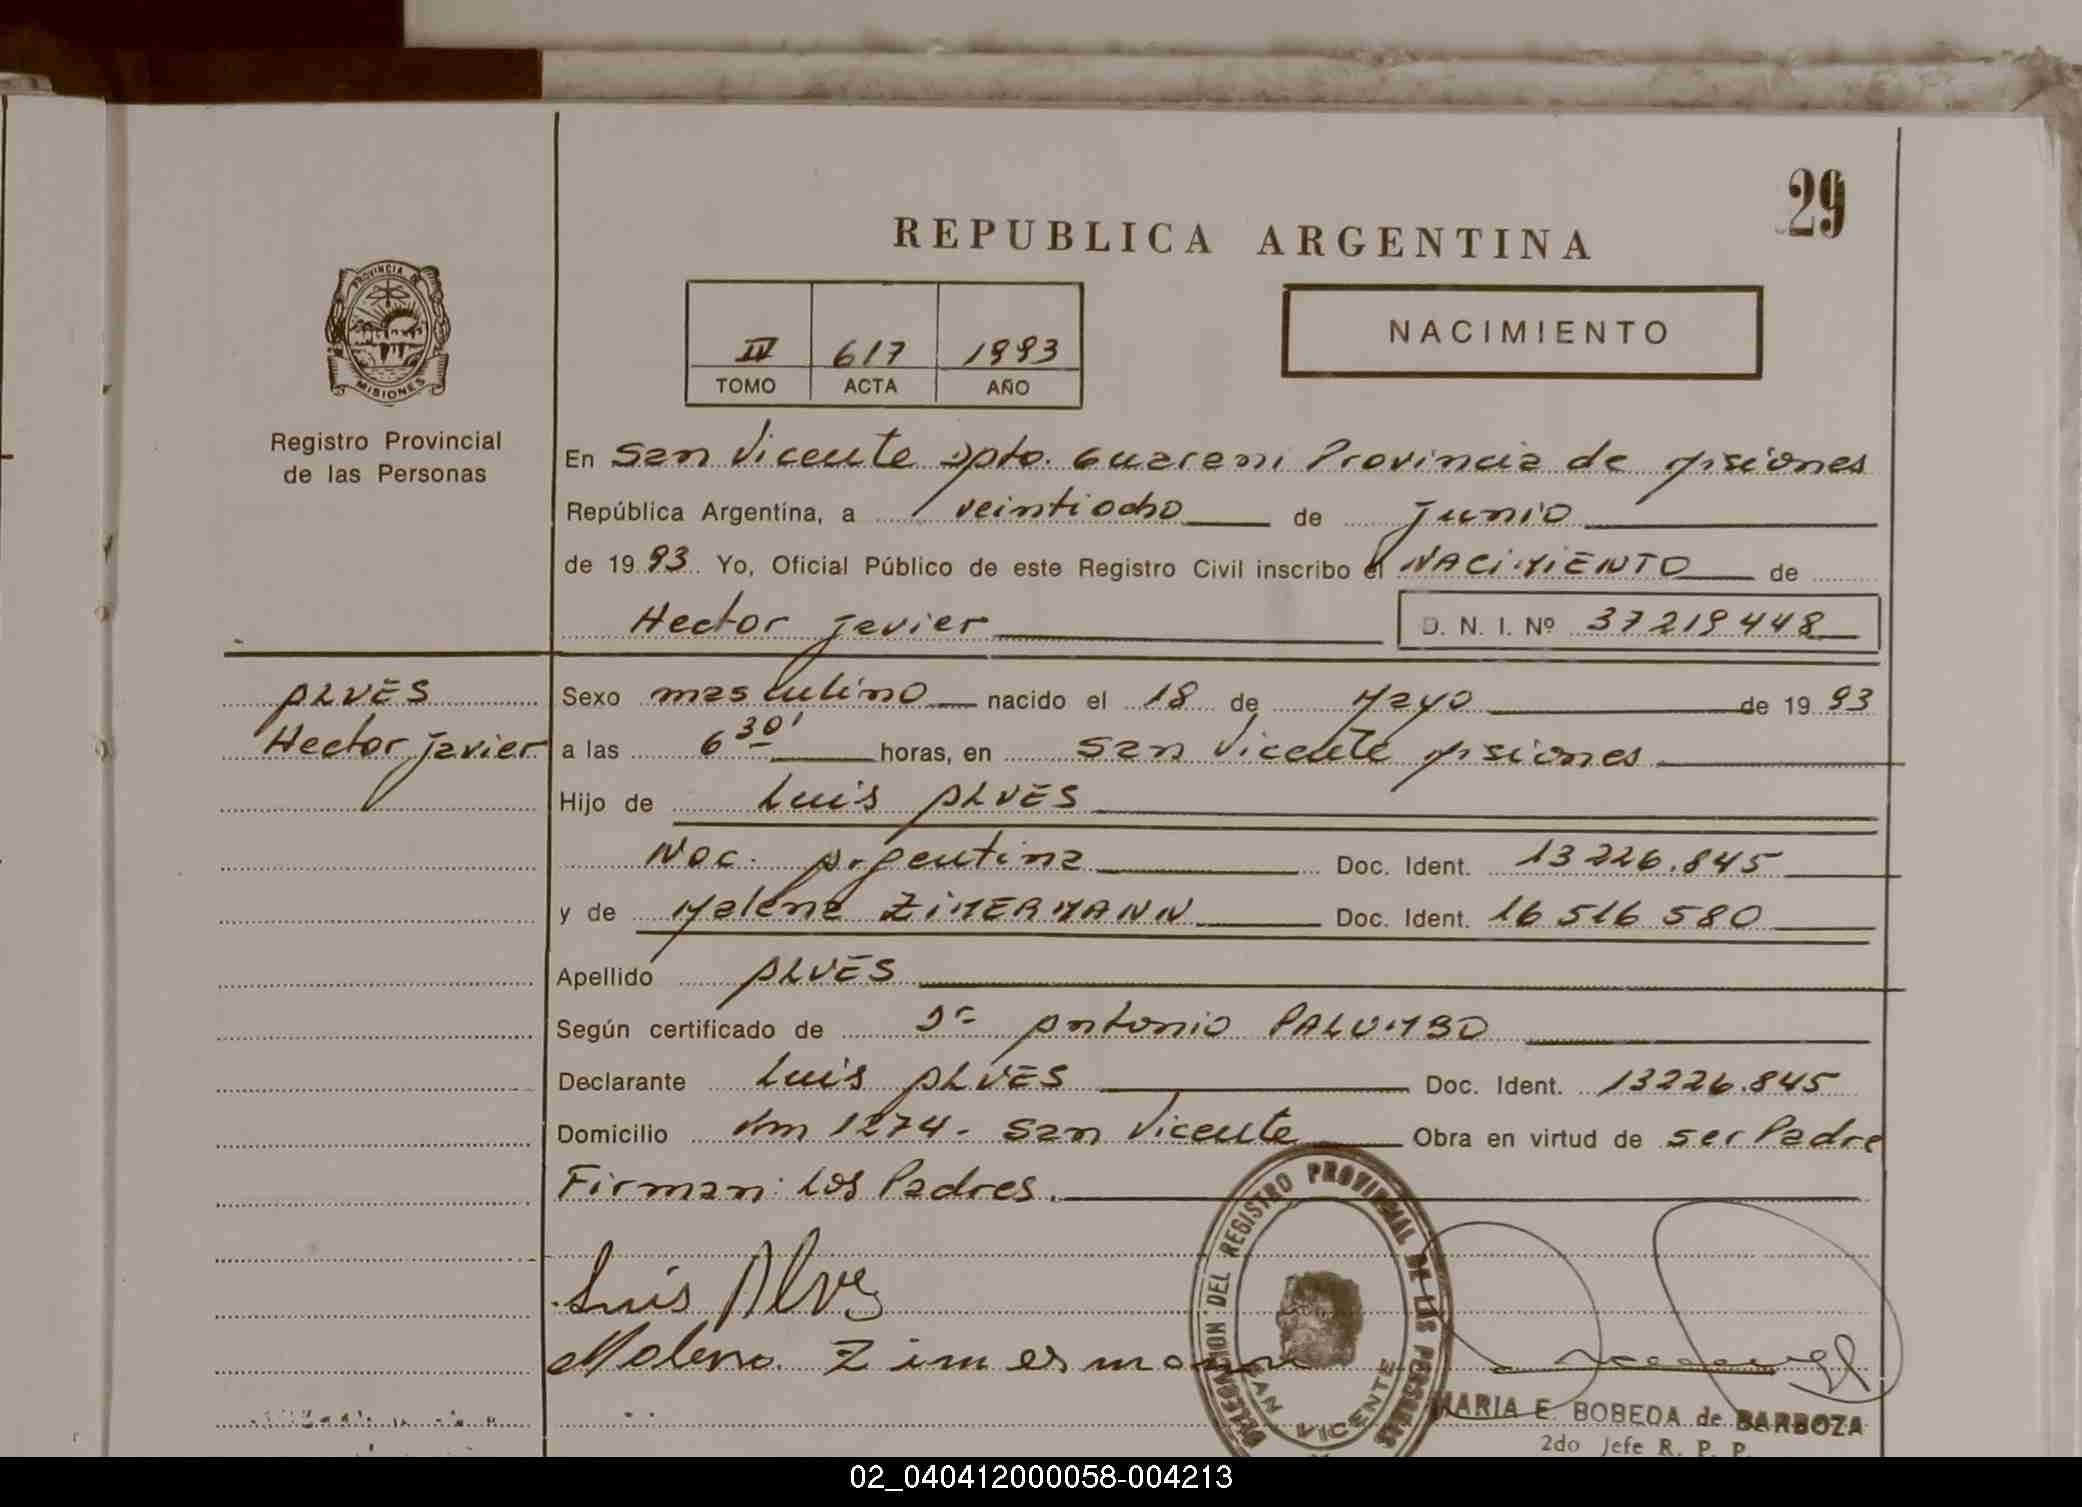 29
REPUBLICA ARGENTINA
PROVINCIA DE
MISIONES
Registro Provincial
de las Personas
IV 617 1993
TOMO ACTA AÑO
NACIMIENTO
En San Vicente Dpto. Guarani Provincia de Misiones
República Argentina, a veintiocho de Junio
de 1993 Yo, Oficial Público de este Registro Civil inscribo el NACIMIENTO de
Hector Javier D. N. I. Nº 37219448
ALVES
Hector Javier
Sexo masculino nacido el 18 de Mayo de 1993
a las 6 30' horas, en San Vicente Misiones
Hijo de Luis ALVES
Nac. Argentina Doc. Ident. 13226.845
y de Malena ZIMERMANN Doc. Ident. 16 516 580
Apellido ALVES
Según certificado de Dr Antonio PALUMBO
Declarante Luis ALVES Doc. Ident. 13226.845
Domicilio Km 1274 - San Vicente Obra en virtud de ser Padre
Firman: Los Padres.
Luis Alves
Malena Zimermann
DELEGACION DEL REGISTRO PROVINCIAL DE LAS PERSONAS
SAN VICENTE
MARIA E. BOBEDA de BARBOZA
2do Jefe R. P. P.
02_040412000058-004213